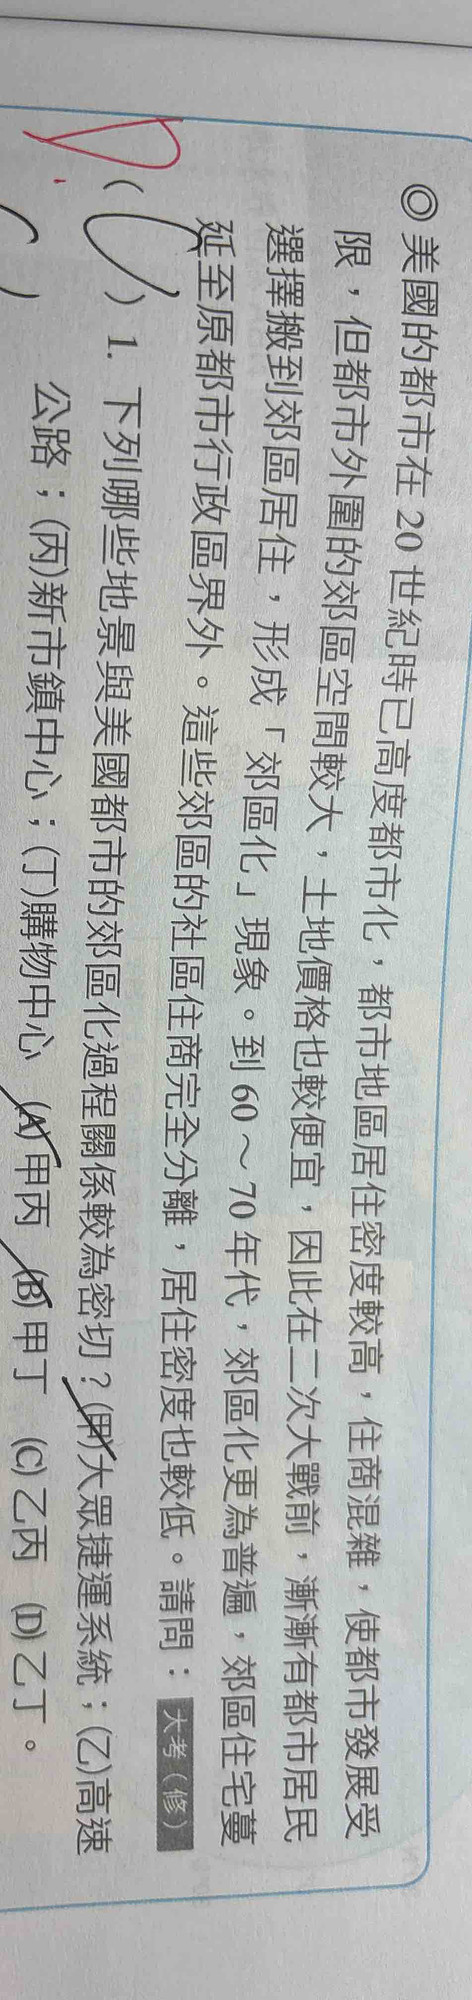 ◎美國的都市在 20 世紀時已高度都市化，都市地區居住密度較高，住商混雜，使都市發展受
限，但都市外圍的郊區空間較大，土地價格也較便宜，因此在二次大戰前，漸漸有都市居民
選擇搬到郊區居住，形成「郊區化」現象。到 60～70 年代，郊區化更為普遍，郊區住宅蔓
延至原都市行政區界外。這些郊區的社區住商完全分離，居住密度也較低。請問： 大考（修）
( C ) 1. 下列哪些地景與美國都市的郊區化過程關係較為密切？(甲)大眾捷運系統；(乙)高速
公路；(丙)新市鎮中心；(丁)購物中心 (A)甲丙 (B)甲丁 (C)乙丙 (D)乙丁。
D.